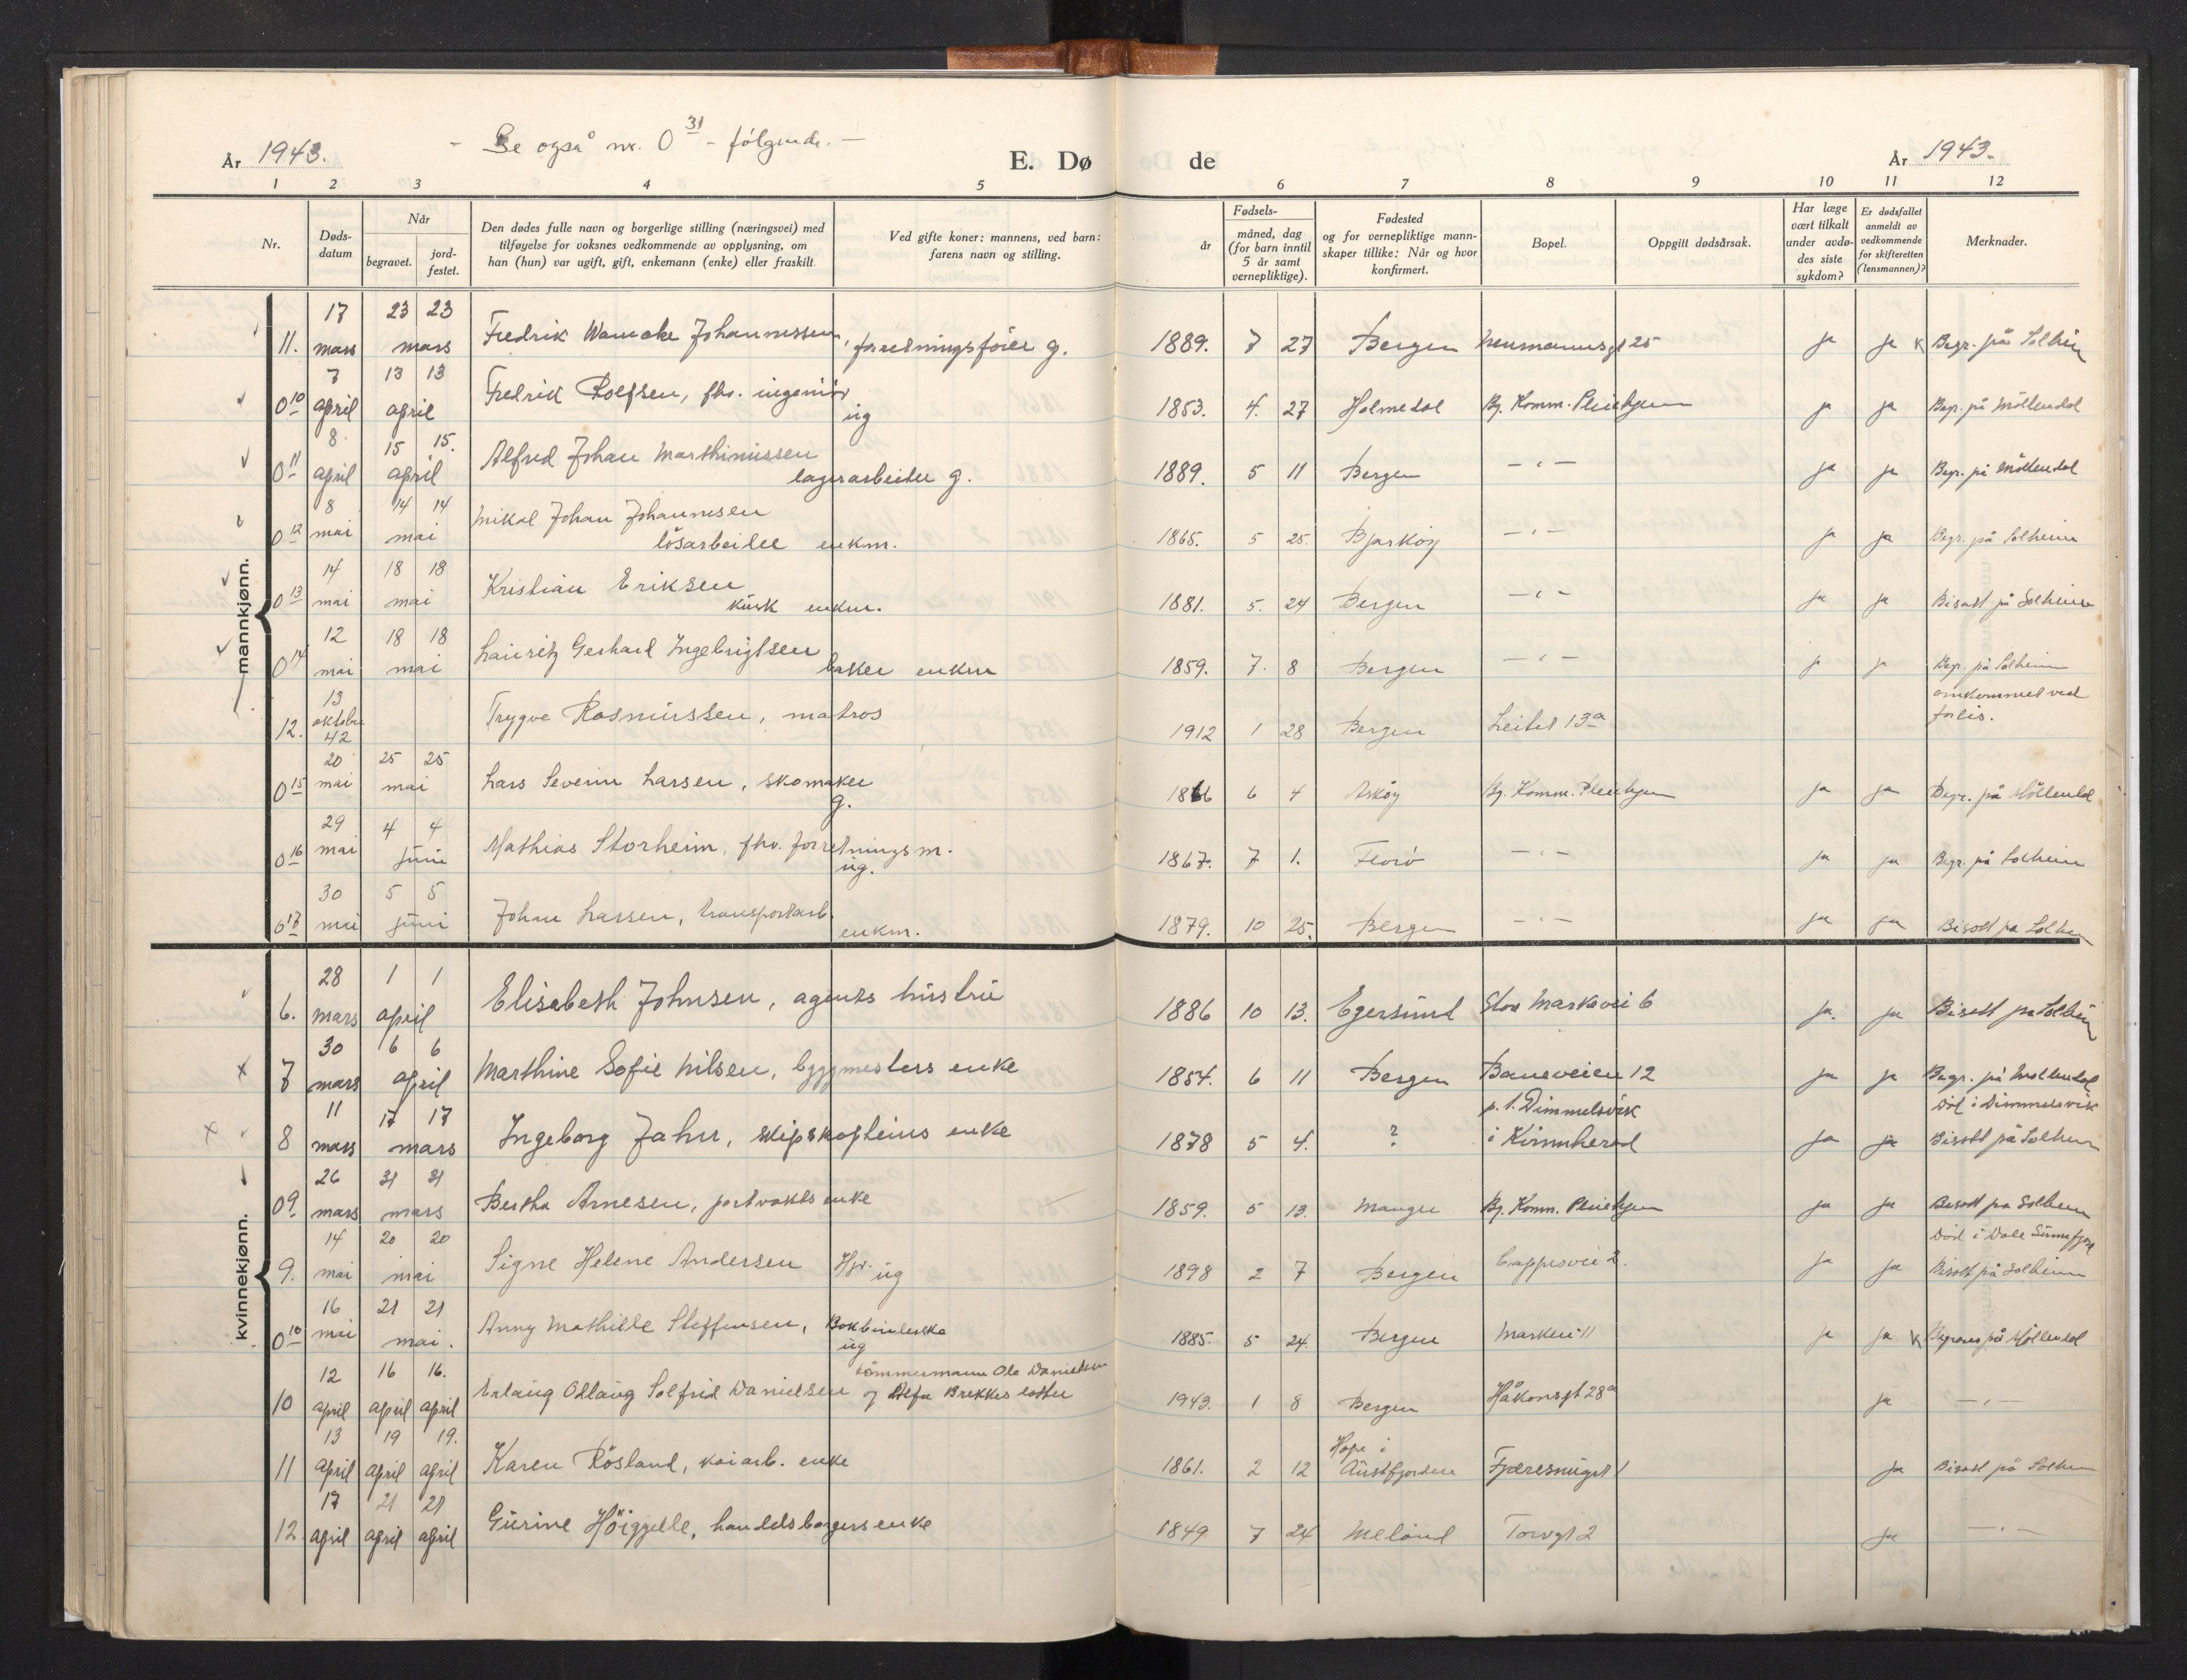 - Se også nr. 0 31 - følgende. -
År 1943. E. Dø de År 1943.
1 2 3 4 5 6 7 8 9 10 11 12
Nr.
Døds-
datum
Når
begravet.
jord-
festet.
Den dødes fulle navn og borgerlige stilling (næringsvei) med
tilføyelse for voksnes vedkommende av opplysning, om
han (hun) var ugift, gift, enkemann (enke) eller fraskilt
Ved gifte koner: mannens, ved barn:
farens navn og stilling.
Fødsels-
år
måned, dag
(for barn inntil
5 år samt
vernepliktige).
Fødested
og for vernepliktige mann-
skaper tillike: Når og hvor
konfirmert.
Bopel.
Oppgitt dødsårsak.
Har læge
vært tilkalt
under avdø-
des siste
sykdom?
Er dødsfallet
anmeldt av
vedkommende
for skifteretten
(lensmannen)?
Merknader.
mannkjønn.
11. 17 mars 23 23 mars Fredrik Johannessen, forretningsfører g. 1889. 7 27 Bergen Neumannsgt 25 ja ja Begr. på Solheim
0 10 7 april 13 13 april Fredrik Rolfsen, fhv. ingeniør ug 1853. 4. 27 Holmedal Bg. Komm. Pleiehjem ja ja Begr. på Møllendal
0 11 8 april 15 15. april Alfred Johan Marthinussen lagerarbeider g. 1889. 5 11 Bergen - " - ja ja Begr. på Møllendal
0 12 8 mai 14 14 mai Mikal Johan Johannesen løsarbeider enkm. 1865. 5 25. Bjarkøy - " - ja ja Begr. på Solheim
0 13 14 mai 18 18 mai Kristian Eriksen kusk enkm. 1881. 5. 24 Bergen - " - ja ja Bisatt på Solheim
0 14 12 mai 18 18 mai Lauritz Gerhard Ingebrigtsen baker enkm 1859. 7. 8 Bergen - " - ja ja Begr. på Solheim
12. 13 oktober 42 Trygve Rasmussen, matros 1912 1 28 Bergen Leitet 13a omkommet ved forlis.
0 15 20 mai 25 25 mai Lars Severin Larsen, skomaker g. 1866 6 4 Askøy Bg. Komm. Pleiehjem ja ja Begr. på Møllendal
0 16 29 mai 4 4 juni Mathias Storheim, fhv. forretningsm. ug. 1867. 7 1. Florø - " - ja ja Begr. på Solheim
0 17 30 mai 5 5 juni Johan Larsen, transportarb. enkm. 1879. 10 25. Bergen - " - ja ja Bisatt på Solheim
kvinnekjønn.
6. 28 mars 1 1 april Elisabeth Johnsen, agents hustru 1886 10 13. Egersund Markevei 6 ja. ja Bisatt på Solheim
7 30 mars 6 6 april Marthine Sofie Nilsen, byggmesters enke 1854. 6 11 Bergen Baneveien 12 ja ja Begr. på Møllendal
8 11 mars 17 17 mars Ingeborg Jahn, skipskapteins enke 1878 5 4. ? p.t. Dimmelsvik i Kvinnherad ja ja Død i Dimmelsvik Bisatt på Solheim
09. 26 mars 31 31 mars Bertha Arnesen, portvakts enke 1859. 5 13. Manger Bg. Komm. Pleiehjem ja ja Bisatt på Solheim
9. 14 mai 20 20 mai Signe Helene Andersen Hpr. ug 1898 2 7 Bergen Cappesvei 2. ja ja Død i Dale Sunnfjord Bisatt på Solheim
0 10 16 mai 21 21 mai. Anny Mathilde Steffensen, Bokbinderske ug 1885. 5 24 Bergen Markeni 11 ja ja Begraves på Møllendal
10 12 april 16 april 16. april Erlaug Odlaug Solfrid Danielsen tømmermann Ola Danielsen og Alfa Brekkes datter 1943. 1 8 Bergen Håkonsgt 28a ja - " -
11 13 april 19 april 19. april Karen Røsland, kaiarb. enke 1861. 2 12 Hope i Austfjorden Fjæresmuget 1 ja Bisatt på Solheim
12. 17 april 21 april 21 april Gurine Höiggelle, handelsborgers enke 1849 7 24 Meland Torvgt 2 ja - " -